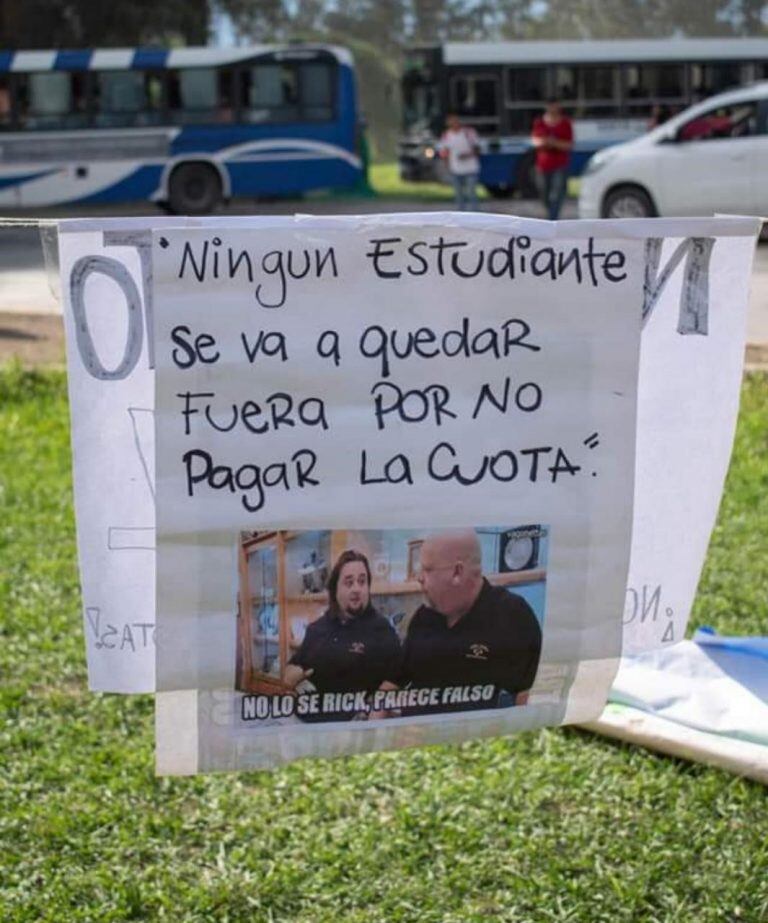 "Ningun Estudiante
se va a quedar
Fuera por no
Pagar la cuota."
NO LO SE RICK, PARECE FALSO